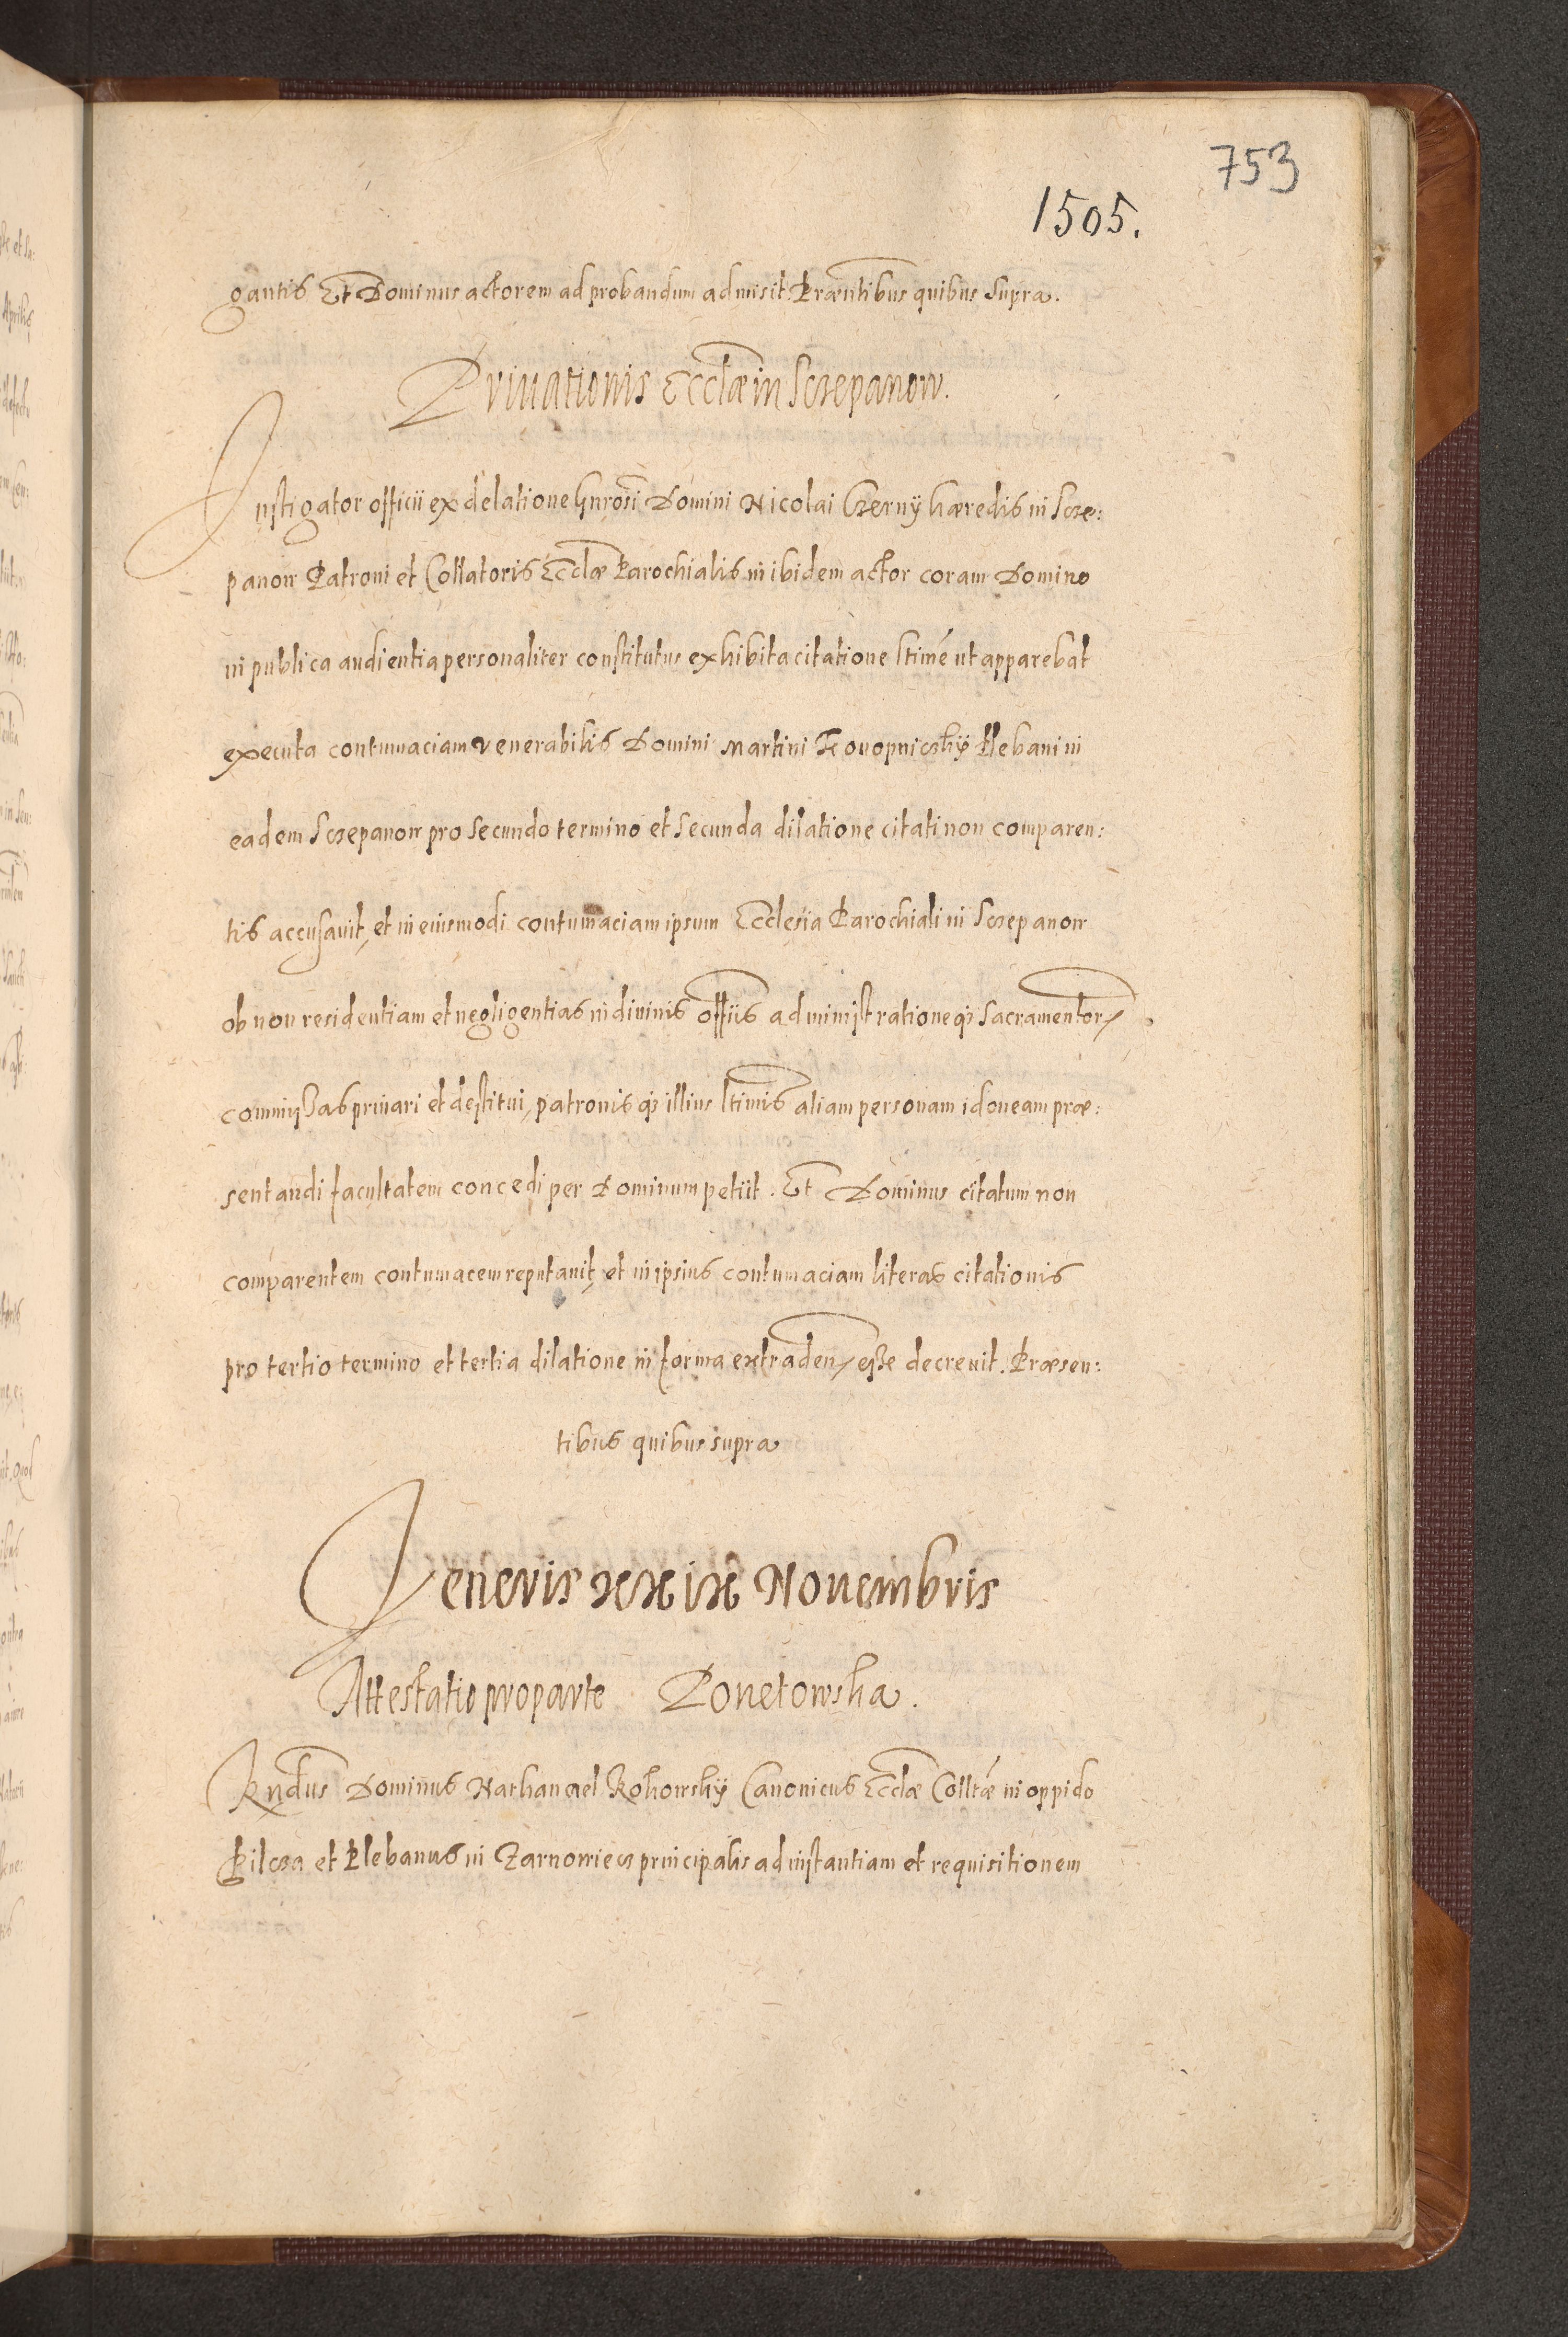 753
1505.
gantis Et Dominus actorem ad probandum admisit. Præntibus quibus supra.
Privationis Ecclæ in Sczepanow.
Instigator officii ex delatione Gnrosi Domini Nicolai Czerny hæredis in Scze:
panow Patroni et Collatoris Ecclæ Parochialis in ibidem actor coram Domino
in publica audientia personaliter constitutus exhibita citatione ltimé ut apparebat
executa contumaciam venerabilis Domini Martini Plebani in
eadem Sczepanow pro secundo termino et secunda dilatione citati non comparen:
tis accusavit, et in eiusmodi contumaciam ipsum Ecclesia Parochiali in Sczepanow
ob non residentiam et negligentias in divinis offiis administrationeq; Sacramentor
commissas privari et destitui, patronisq; illius ltimis aliam personam idoneam præ:
sentandi facultatem concedi per Dominum petiit. Et Dominus citatum non
comparentem contumacem reputavit, et in ipsius contumaciam literas citationis
pro tertio termino et tertia dilatione in forma extraden esse decrevit. Præsen:
tibus quibus supra
Veneris xxix Novembris
Attestatio pro parte Donetowska.
Rndus Dominus Nathanael Kohowsky Canonicus Ecclæ Colltæ in oppido
Pilcza et Plebanus in Zarnowiecz principalis ad instantiam et requisitionem